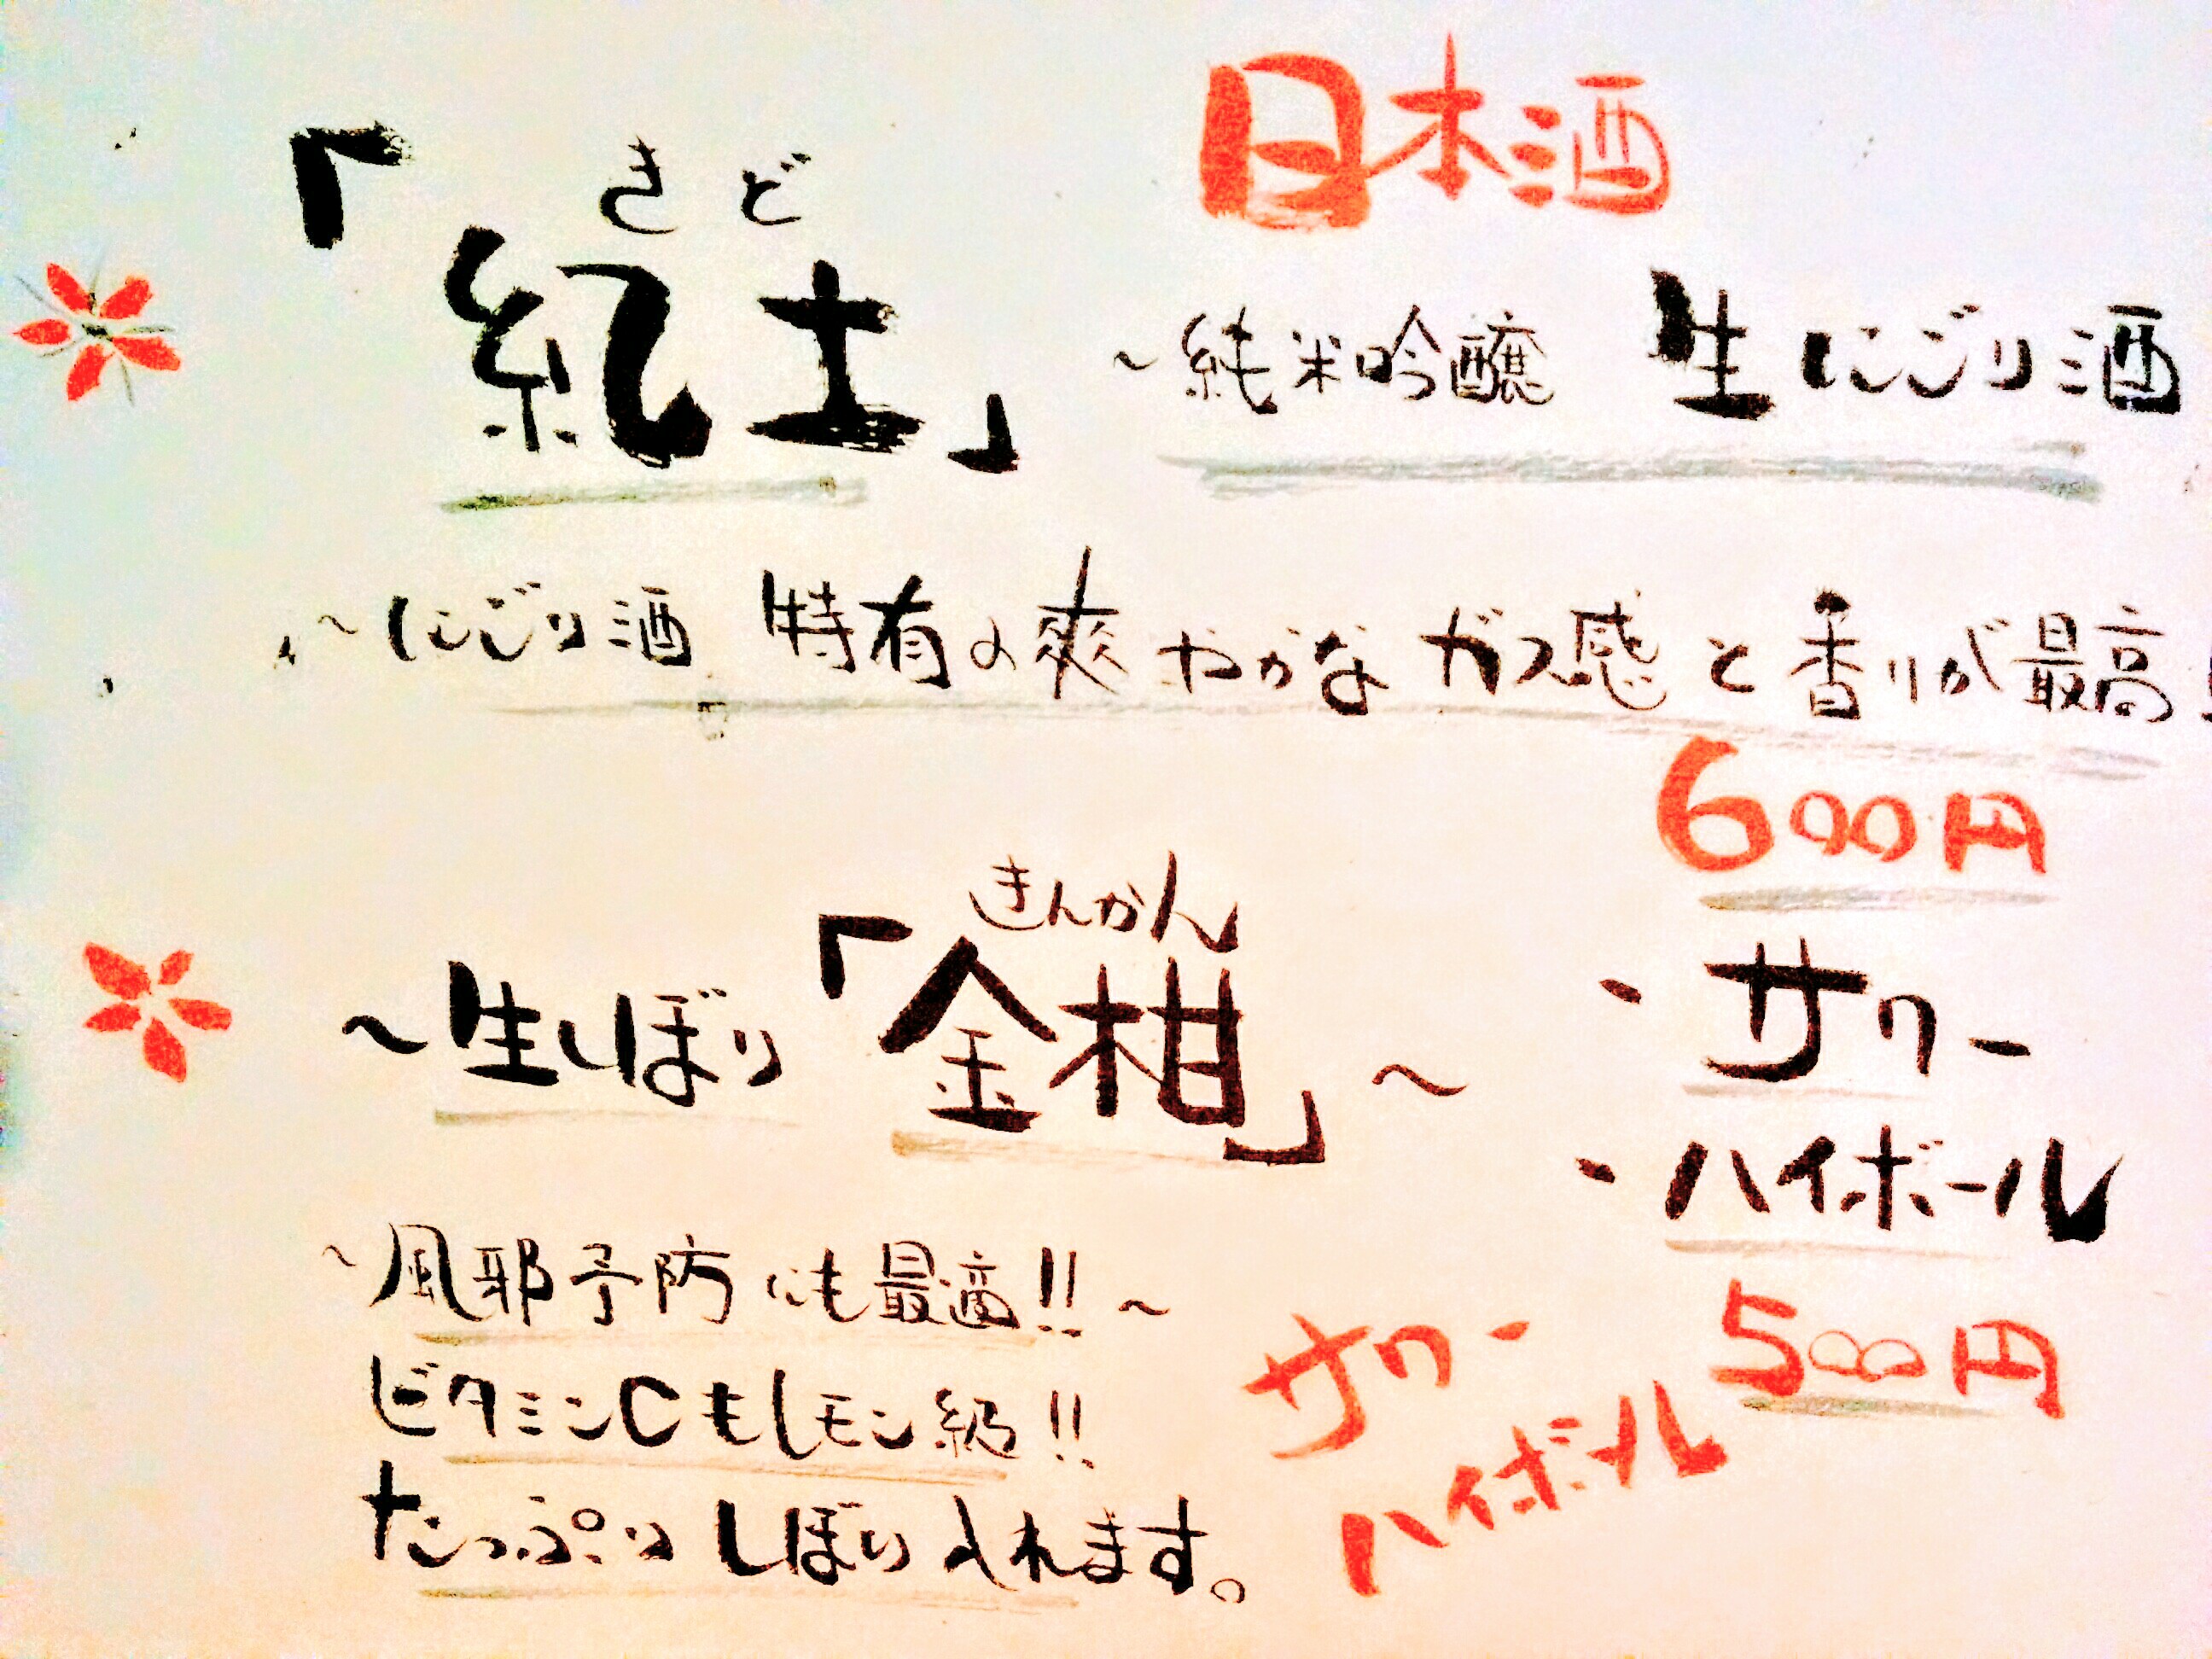 日本酒
きど
「紀土」 ~純米吟醸 生にごり酒
~にごり酒 特有の爽やかなガス感と香りが最高!
600円
きんかん
~生しぼり「金柑」~
・サワー
・ハイボール
500円
~風邪予防にも最適!!~
ビタミンCもレモン級!!
たっぷりしぼり入れます。
サワー
ハイボール